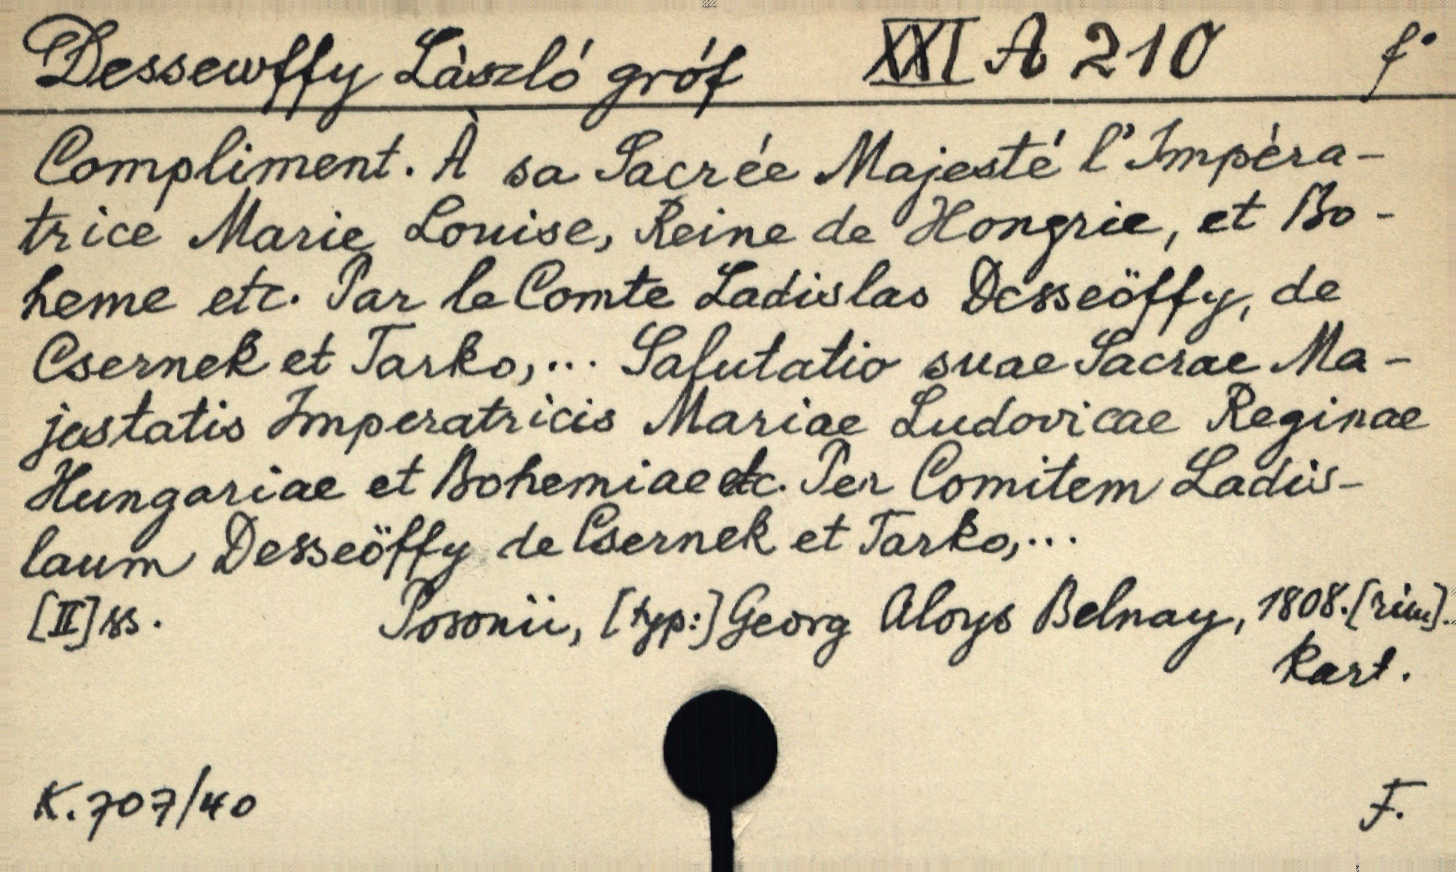 Dessewffy Làszló gróf XXI A 210 f°
Compliment. À sa Sacrée Majesté l'Impéra-
trice Marie Louise, Reine de Hongrie, et Bo-
heme etc. Par le Comte Ladislas Desseöffy, de
Csernek et Tarko,... Salutatio suae Sacrae Ma-
jestatis Imperatricis Mariae Ludovicae Reginae
Hungariae et Bohemiae etc. Per Comitem Ladis-
laum Desseöffy de Csernek et Tarko,...
[II] ss. Posonii, [typ:] Georg Aloys Belnay, 1808.
kart.
K.707/40 F.